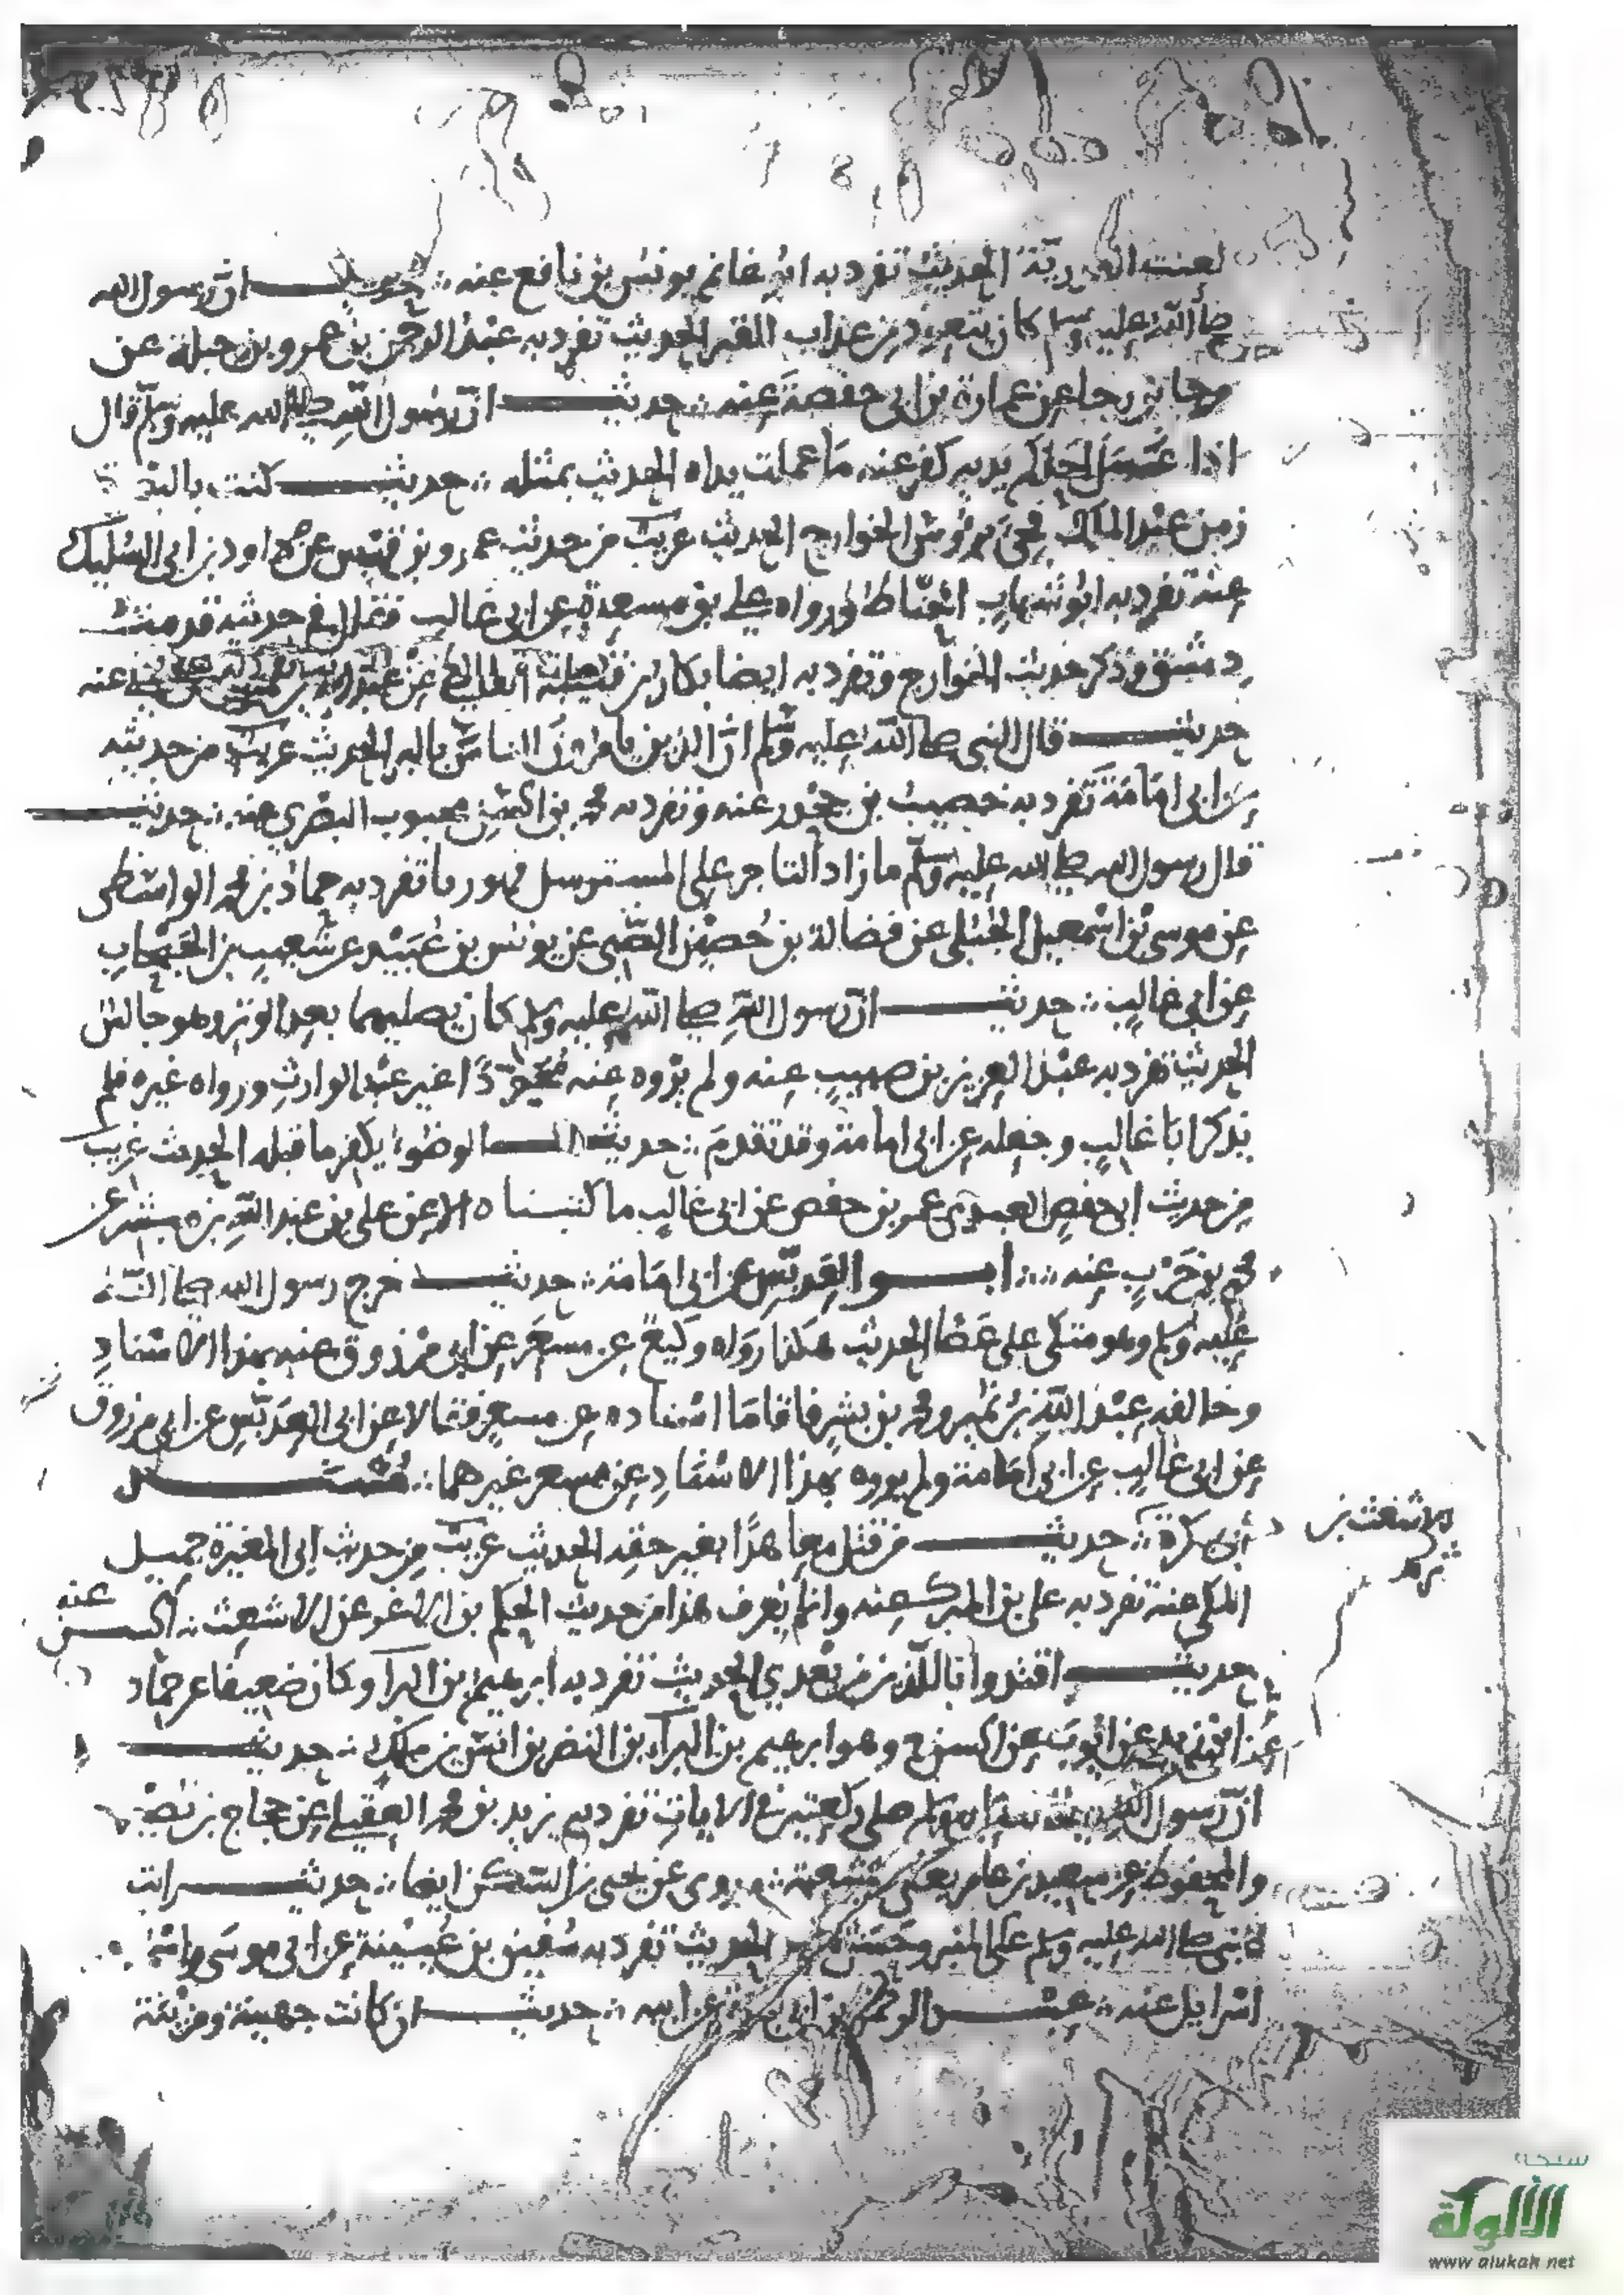 لعنت القدرية الحديث تفرد به ابو غانم يونس بن نافع عنه ؞ حديث ان رسول الله
صلى الله عليه وسلم كان يتعوذ من عذاب القبر الحديث تفرد به عبد الرحمن بن عمرو بن جبلة عن
رجا عن عمارة بن ابى حفصة عنه ؞ حديث ان رسول الله صلى الله عليه وسلم قال
اذا غسل احدكم يديه كفر عنه ما عملت يداه الحديث بمثله ؞ حديث كنت
زمن عبد الملك الخوارج الحديث غريب من حديث عمرو بن قيس عن داود بن ابى السليك
عنه تفرد به ابو شهاب الحناط ورواه على بن مسعدة عن ابى غالب فقال فى حديثه قدمت
دمشق وذكر حديث الخوارج وتفرد به ايضا بكار بن عنه
حديث قال النبى صلى الله عليه وسلم ان الذين يامرون الناس بالبر الحديث غريب من حديثه
عن ابى امامة تفرد به خصيب بن جحدر عنه وتفرد به محمد بن الحسن محبوب البصرى عنه ؞ حديث
قال رسول الله صلى الله عليه وسلم ما زاد التاجر على المسترسل فهو ربا تفرد به حماد بن محمد الواسطى
عن موسى بن اسمعيل الجبلى عن فضالة بن حصين الضبى عن يونس بن عبيد عن شعيب بن الحبحاب
عن ابى غالب ؞ حديث ان رسول الله صلى الله عليه وسلم كان يصليهما بعد الوتر وهو جالس
الحديث تفرد به عبد العزيز بن صهيب عنه ولم يروه عنه مجودا غير عبد الوارث ورواه غيره فلم
يذكر ابا غالب وجعله عن ابى امامة وقد تقدم ؞ حديث الوضوء يكفر ما قبله الحديث غريب
من حديث ابى حفص العبدى عمر بن حفص عن ابى غالب ما كتبناه الا عن على بن عبد الله بن مبشر عن
محمد بن حرب عنه ؞ ابو العدبس عن ابى امامة ؞ حديث خرج رسول الله صلى الله
عليه وسلم وهو متكى على عصا الحديث هكذا رواه وكيع عن مسعر عن ابى مرزوق عنه بهذا الاسناد
وخالفه عبد الله بن نمير ومحمد بن بشر فاقاما اسناده عن مسعر فقالا عن ابى العدبس عن ابى مرزوق
عن ابى غالب عن ابى امامة ولم يروه بهذا الاسناد عن مسعر غيرهما ؞ مسند
ابى بكرة ؞ حديث من قتل معاهدا بغير حقه الحديث غريب من حديث ابى المغيرة جميل
الاشعث بن
ثرملة
المكى عنه تفرد به على بن المبرك عنه وانما يعرف هذا من حديث الحكم بن الاعرج عن الاشعث ؞ الحسن عنه
حديث اقتدوا باللذين من بعدى الحديث تفرد به ابرهيم بن البرا وكان ضعيفا عن حماد
بن زيد عن ايوب عن الحسن وهو ابرهيم بن البراء بن النضر بن انس بن ملك ؞ حديث
ان رسول الله صلى ركعتين فى الايات تفرد به يزيد بن محمد العقيلى عن حجاج بن نصير
والمحفوظ عن سعيد بن عامر عن شعبة وروى عن يحيى بن السكن ايضا ؞ حديث رايت
النبى صلى الله عليه وسلم على المنبر وحسن الحديث تفرد به سفين بن عيينة عن ابى موسى
اسرايل عنه ؞ عبد الرحمن بن ابى بكرة عن ابيه ؞ حديث ان كانت جهينة ومزينة
شبكة
الألوكة
www.alukah.net